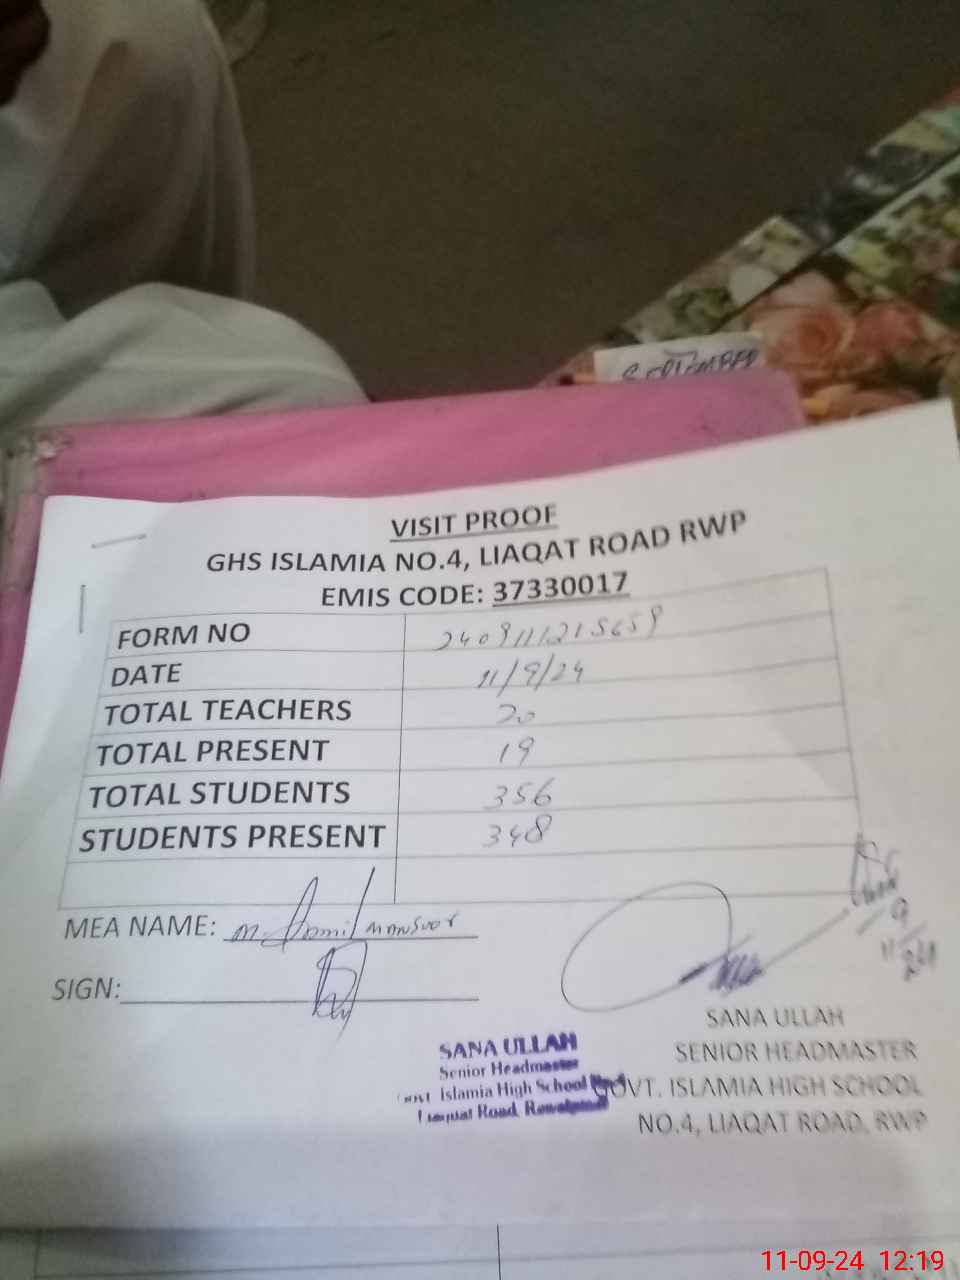 SEPTEMBER
VISIT PROOF
GHS ISLAMIA NO.4, LIAQAT ROAD RWP
EMIS CODE: 37330017
FORM NO 2409111215659
DATE 11/9/24
TOTAL TEACHERS 20
TOTAL PRESENT 19
TOTAL STUDENTS 356
STUDENTS PRESENT 348
MEA NAME: M. Jamil Mansoor
SIGN:
11/9/24
SANA ULLAH
SENIOR HEADMASTER
GOVT. ISLAMIA HIGH SCHOOL
NO.4, LIAQAT ROAD, RWP
SANA ULLAH
Senior Headmaster
Govt Islamia High School No.4
Liaquat Road, Rawalpindi
11-09-24 12:19